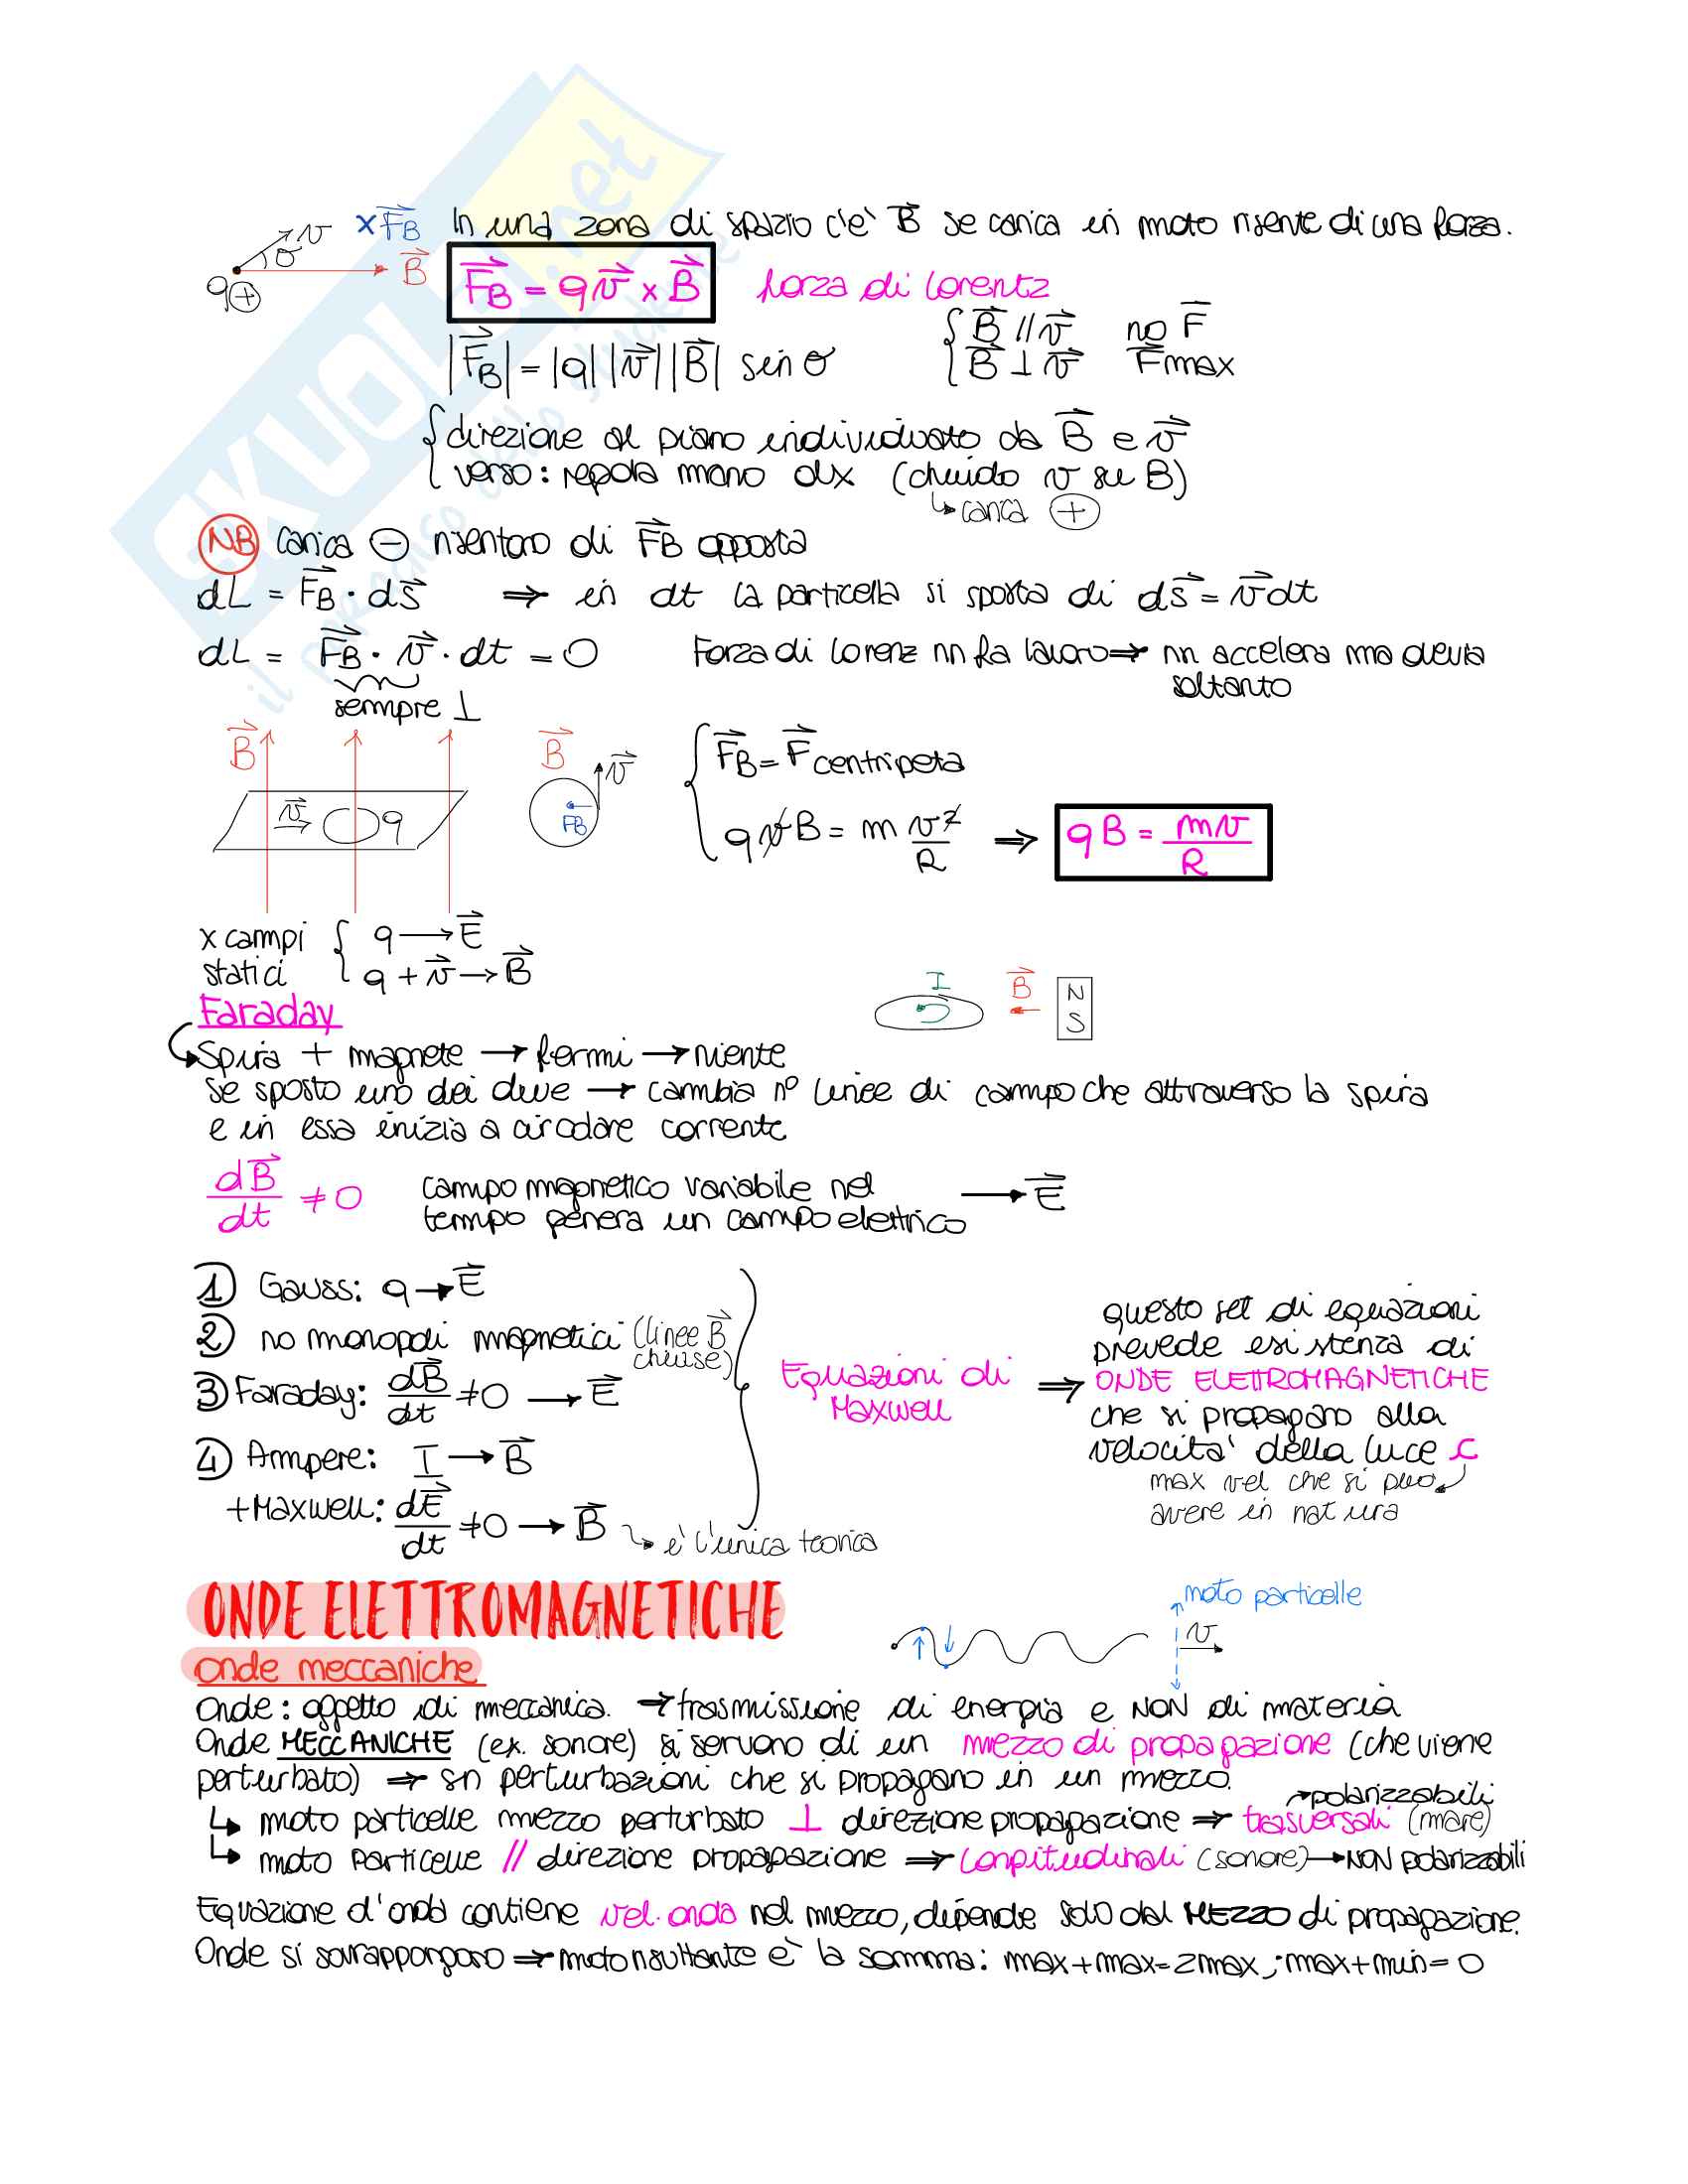 SKUOLA.net
il paradiso dello studente
v xF⃗B In una zona di spazio c'è B⃗ se carica in moto risente di una forza.
θ B⃗
q⊕
F⃗B = qv⃗ x B⃗ forza di Lorentz
|F⃗B| = |q| |v⃗| |B⃗| sin θ
{ B⃗ // v⃗ no F⃗
B⃗ ⊥ v⃗ F⃗max
{ direzione al piano individuato da B⃗ e v⃗
verso: regola mano dx (chiudo v su B)
↳ carica ⊕
NB carica ⊖ risentono di F⃗B opposta
dL = F⃗B · ds⃗ ⇒ in dt la particella si sposta di ds⃗ = v⃗dt
dL = F⃗B · v⃗ · dt = 0 Forza di Lorenz nn fa lavoro ⇒ nn accelera ma devia
soltanto
sempre ⊥
B⃗ v⃗ q
B⃗ v⃗ FB
{ F⃗B = F⃗centripeta
qvB = m v²/R ⇒ qB = mv/R
x campi { q → E⃗
statici q + v⃗ → B⃗
I B⃗ N
S
Faraday
↳ Spira + magnete → fermi → niente
se sposto uno dei due → cambia n° linee di campo che attraverso la spira
e in essa inizia a circolare corrente
dB⃗/dt ≠ 0 campo magnetico variabile nel → E⃗
tempo genera un campo elettrico
① Gauss: q → E⃗
② no monopoli magnetici (linee B⃗
chiuse)
③ Faraday: dB⃗/dt ≠ 0 → E⃗
④ Ampere: I → B⃗
+ Maxwell: dE⃗/dt ≠ 0 → B⃗ ↳ è l'unica teorica
Equazioni di
Maxwell
⇒ questo set di equazioni
prevede esistenza di
ONDE ELETTROMAGNETICHE
che si propagano alla
velocità della luce c
max vel che si può
avere in natura
ONDE ELETTROMAGNETICHE
moto particelle
v
onde meccaniche
Onde: oggetto di meccanica. → trasmissione di energia e NON di materia
Onde MECCANICHE (ex. sonore) si servono di un mezzo di propagazione (che viene
perturbato) ⇒ sn perturbazioni che si propagano in un mezzo.
→ polarizzabili
↳ moto particelle mezzo perturbato ⊥ direzione propagazione ⇒ trasversali (mare)
↳ moto particelle // direzione propagazione ⇒ longitudinali (sonore) → NON polarizzabili
Equazione d'onda contiene vel. onda nel mezzo, dipende solo dal MEZZO di propagazione.
Onde si sovrappongono ⇒ moto risultante è la somma: max + max = 2max ; max + min = 0